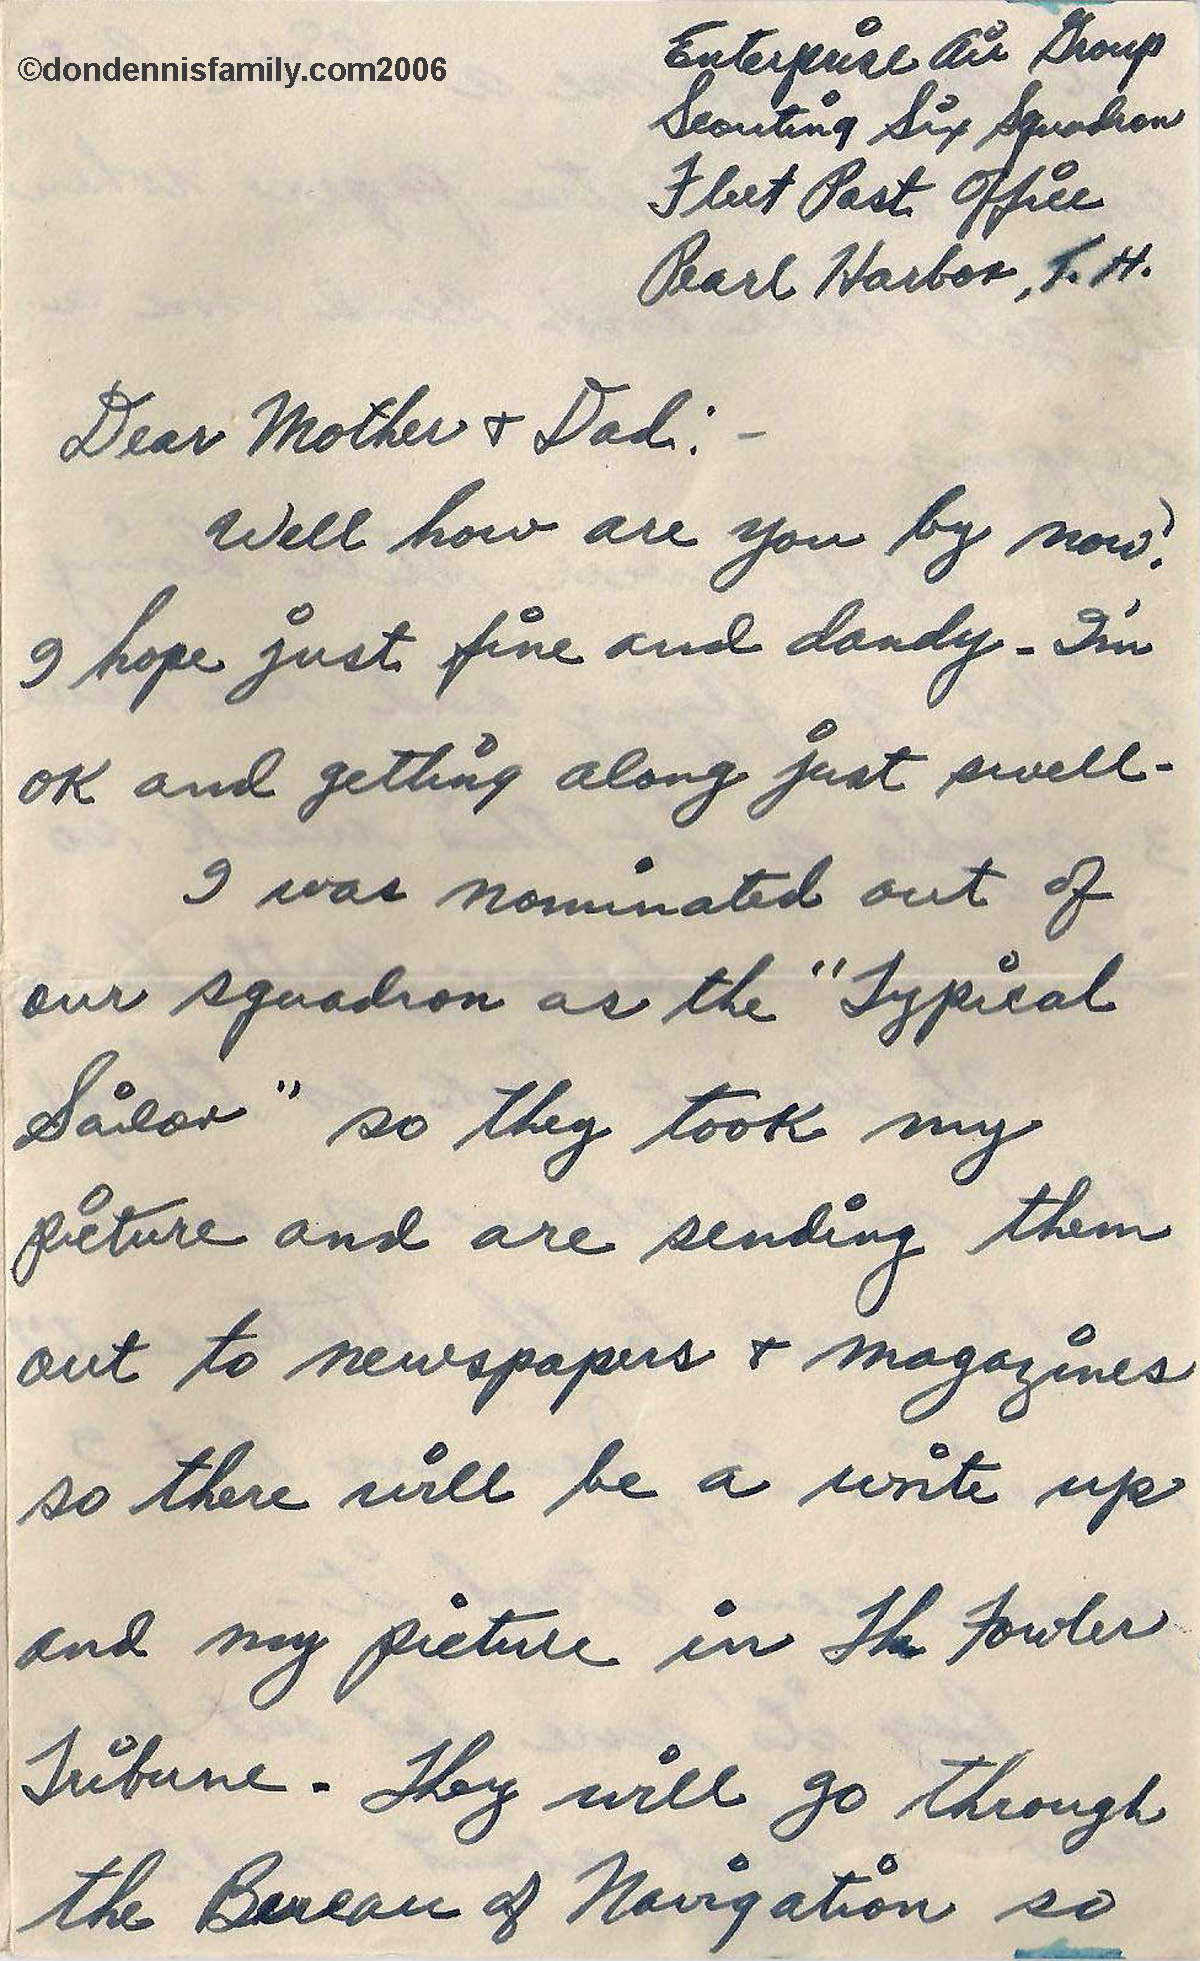 ©dondennisfamily.com2006
Enterprise Air Group
Scouting Six Squadron
Fleet Post Office
Pearl Harbor, T.H.
Dear Mother + Dad: -
Well how are you by now?
I hope just fine and dandy - I'm
OK and getting along just swell -
I was nominated out of
our squadron as the "Typical
Sailor" so they took my
picture and are sending them
out to newspapers + magazines
so there will be a write up
and my picture in The Fowler
Tribune - They will go through
the Bureau of Navigation so